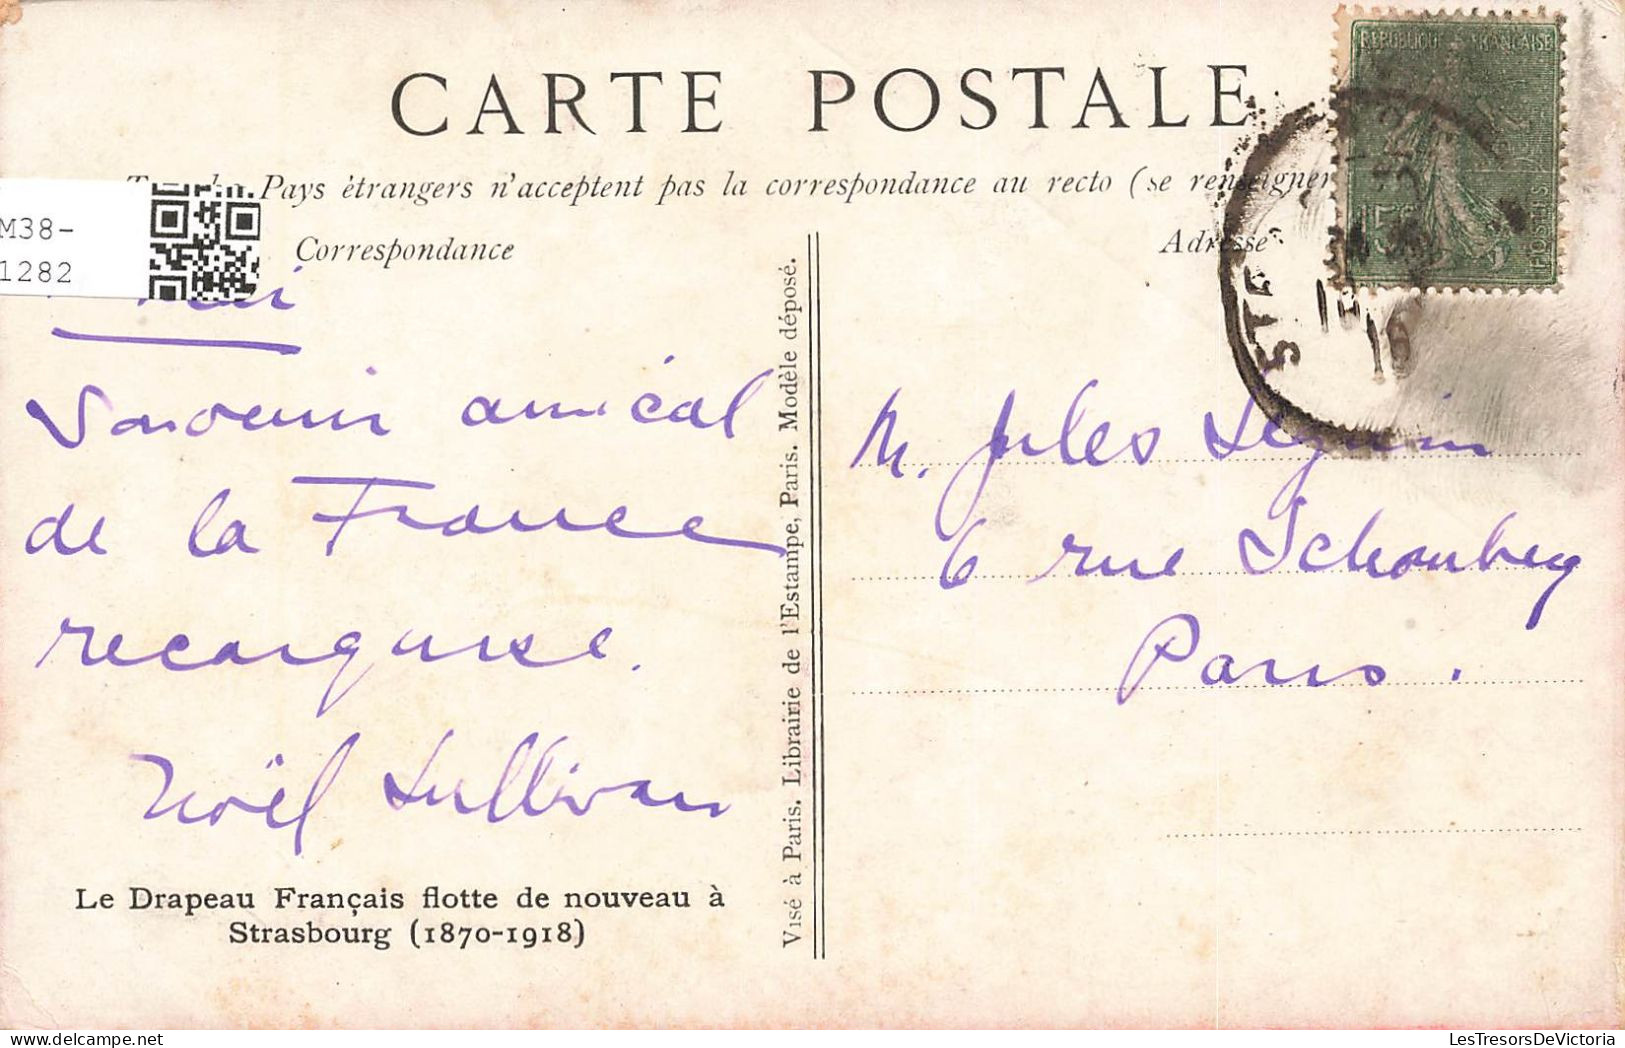 RÉPUBLIQUE FRANÇAISE
CARTE POSTALE
Pays étrangers n'acceptent pas la correspondance au recto (se renseigner
M38-
1282
Correspondance
Adresse
15c
POSTES
Souvenir amical
de la France
reconquise.
Noël Sullivan
Le Drapeau Français flotte de nouveau à
Strasbourg (1870-1918)
Visé à Paris. Librairie de l'Estampe, Paris. Modèle déposé.
M. Jules Séguin
6 rue Schomberg
Paris.
LesTresorsDeVictoria